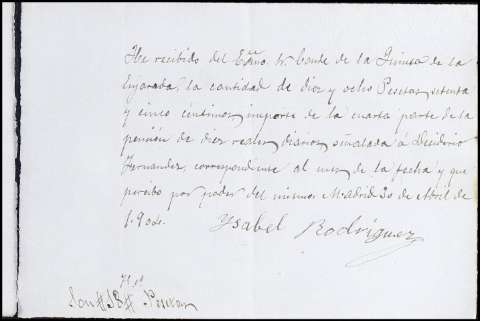 He recibido del Exmo. Sr. Conde de la Quinta de la
Enjarada, la cantidad de diez y ocho Pesetas setenta
y cinco centimos importe de la cuarta parte de la
pensión de diez reales diarios señalada á Desiderio
Fernandez, correspondiente al mes de la fecha y que
percibo por poder del mismo. Madrid 30 de Abril de
1.904.
Ysabel Rodríguez
Son # 18 # Pesetas